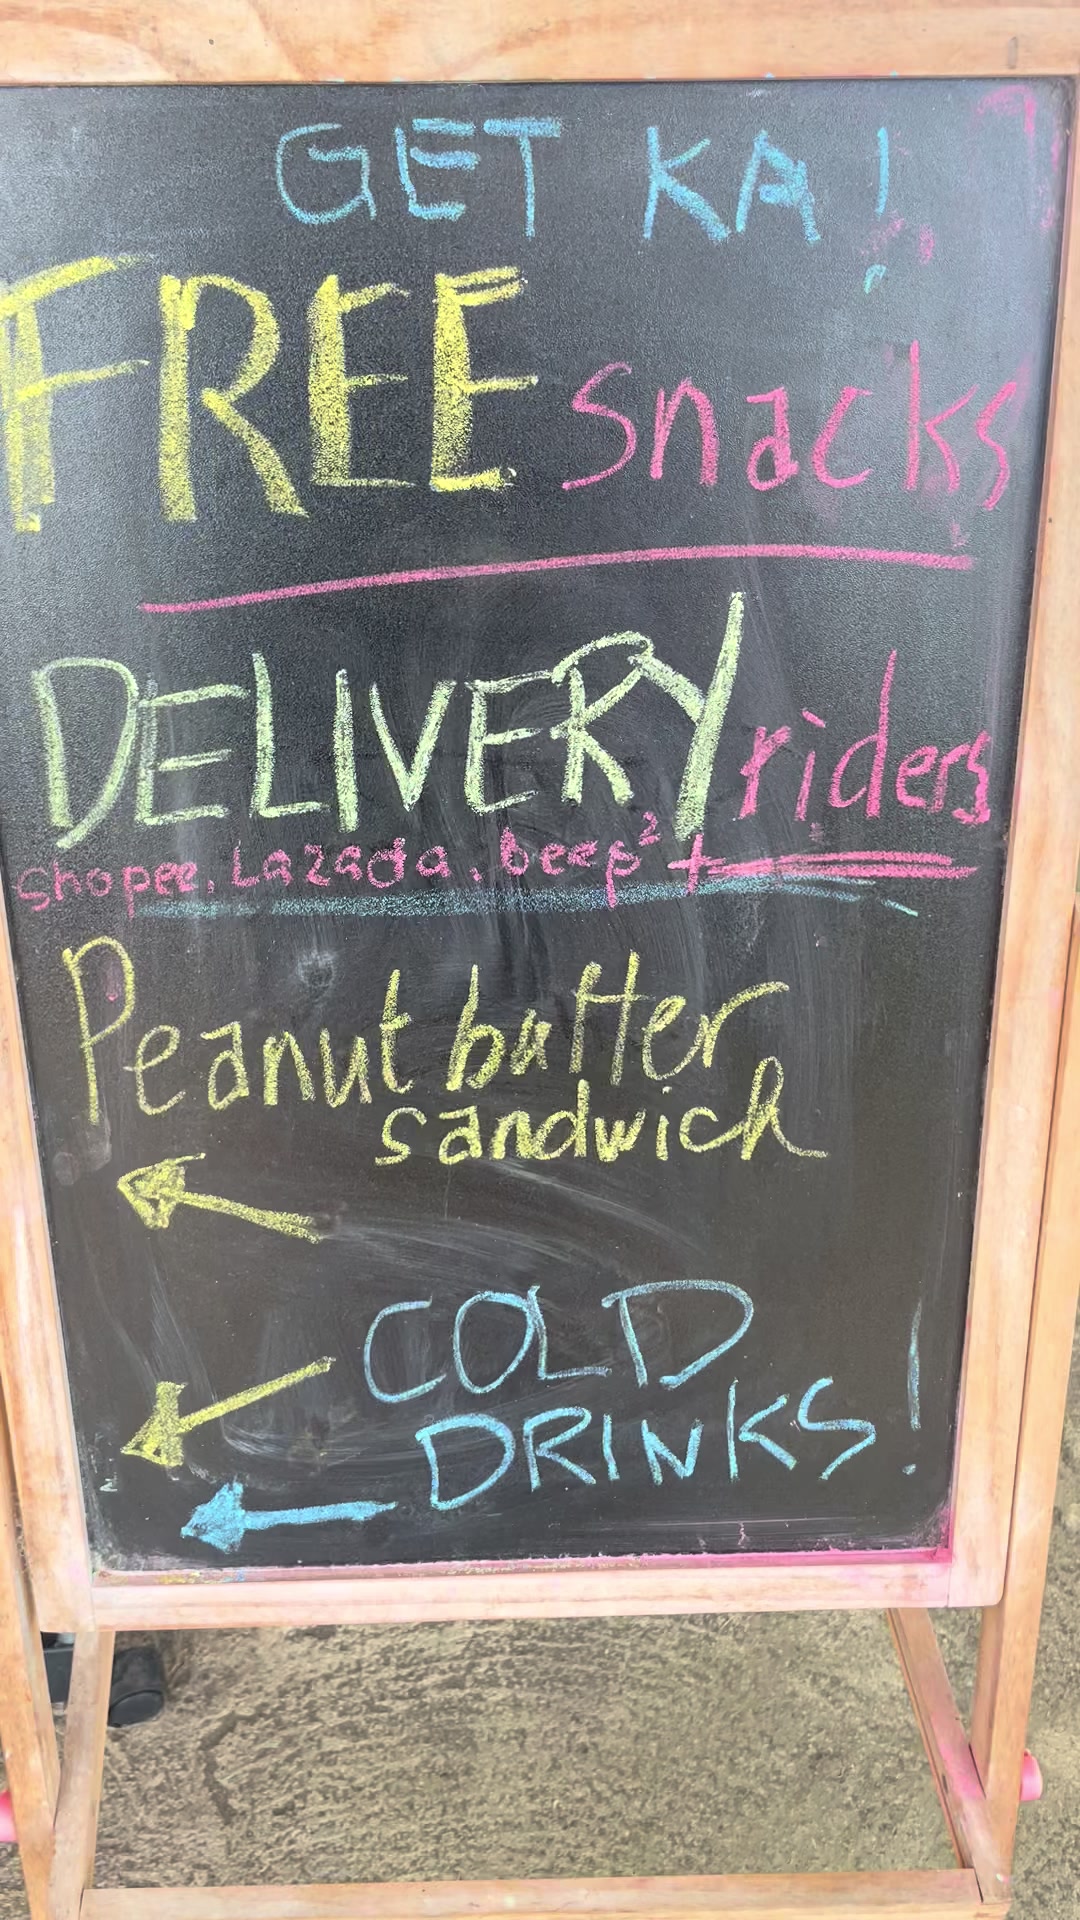 GET KA!
FREE snacks
DELIVERY riders
shopee, Lazada, beep² +
Peanut butter
sandwich
COLD
DRINKS!